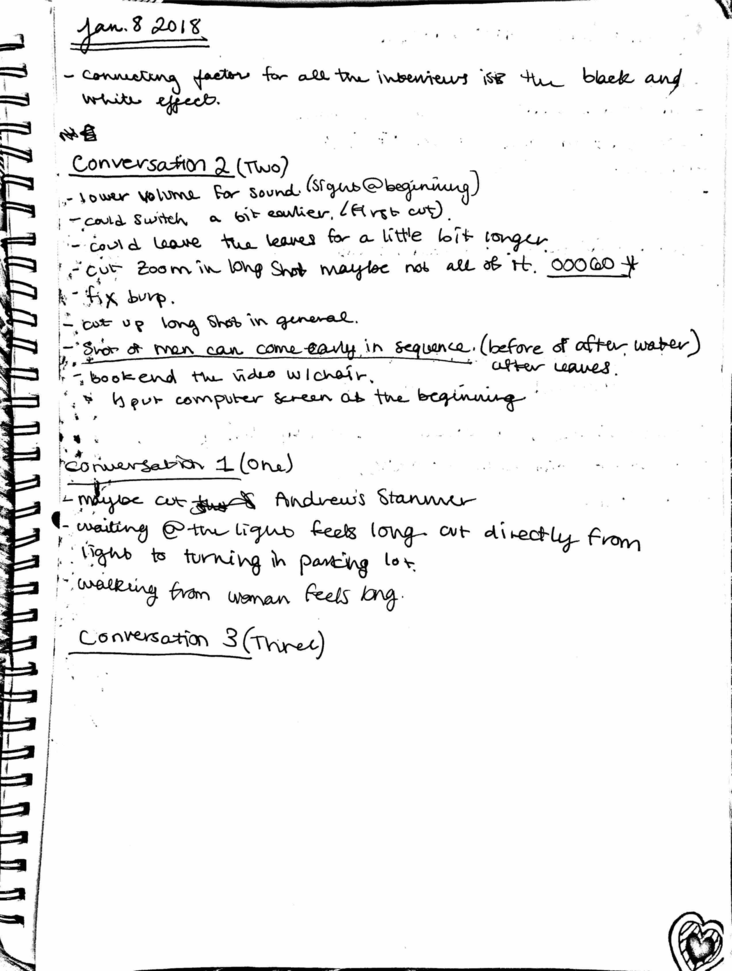 Jan. 8 2018
- connecting factor for all the interviews is the black and
white effect.
Conversation 2 (Two)
- lower volume for sound (signs @ beginining)
- could switch a bit earlier. (first cut).
- could leave the leaves for a little bit longer
- cut zoom in long shot maybe not all of it. 00060 *
- fix burp.
- cut up long shot in general.
- Shot of men can come early in sequence. (before of after water)
after leaves.
- bookend the video w/chair.
put computer screen at the beginning
Conversation 1 (One)
- maybe cut Andrew's Stammer
- waiting @ the light feels long cut directly from
light to turning in parking lot.
- walking from woman feels long.
Conversation 3 (Three)